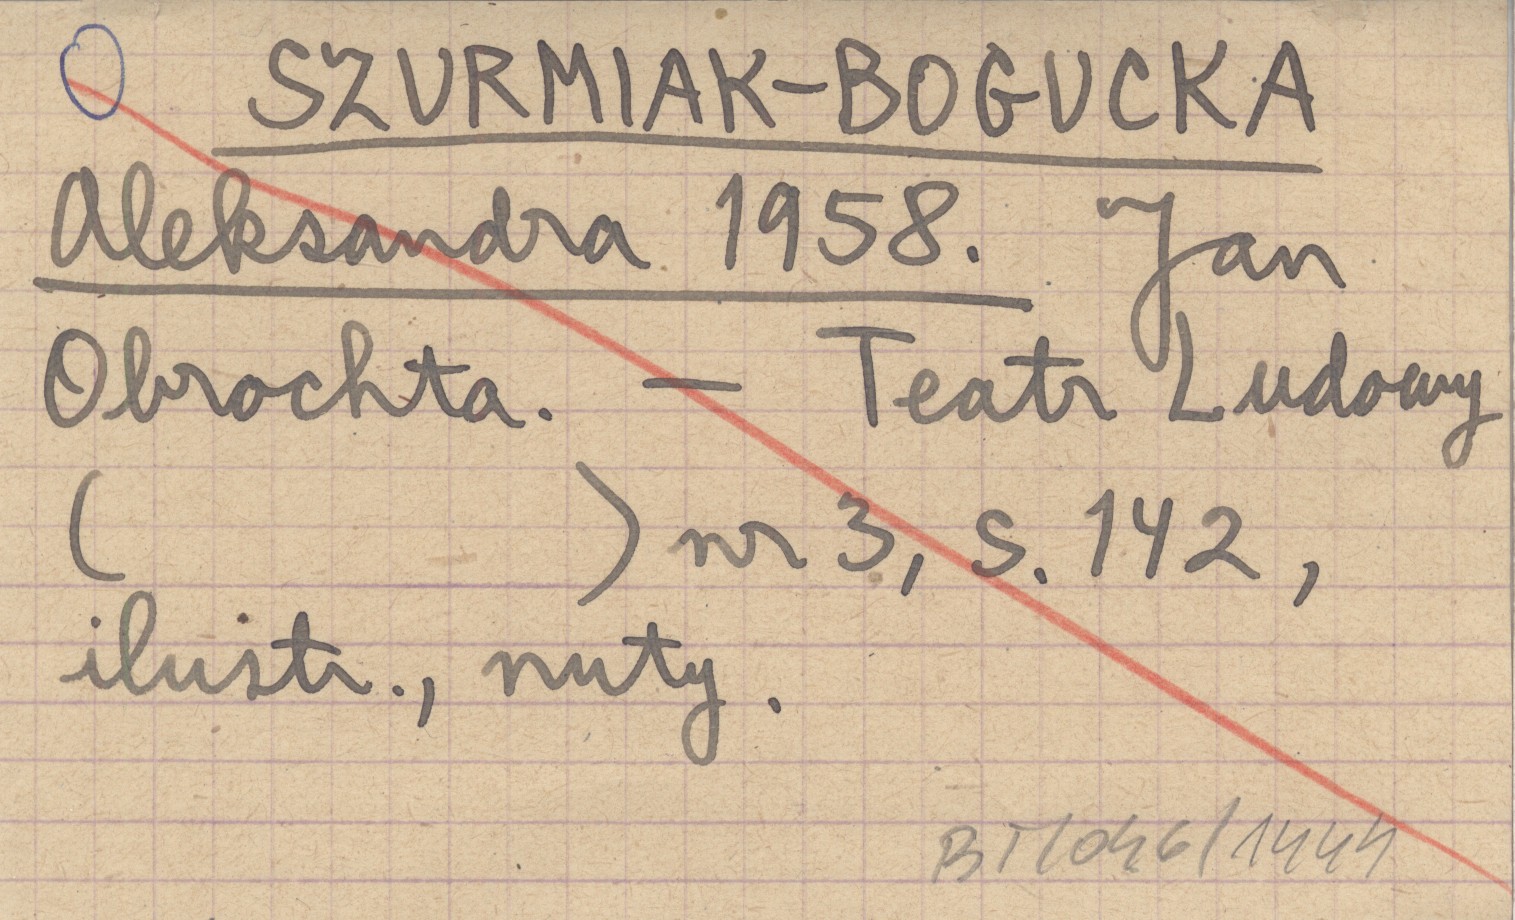 SZURMIAK-BOGUCKA
Aleksandra 1958. Jan
Obrochta. — Teatr Ludowy
( ) nr 3, s. 142,
ilustr., nuty.
BT/046/1444